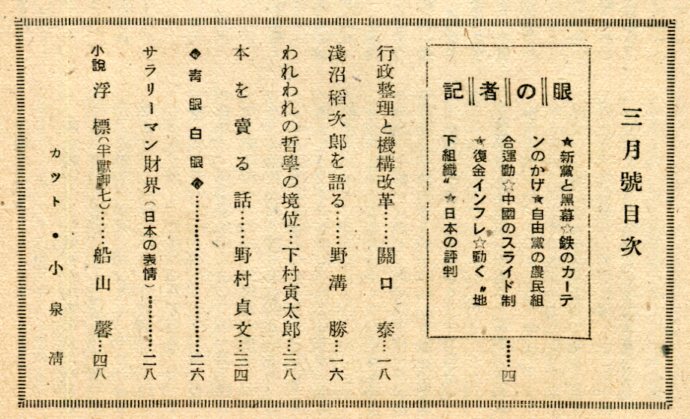 三月號目次
記者の眼
★新黨と黑幕☆鉄のカーテ
ンのかげ★自由黨の農民組
合運動☆中國のスライド制
★復金インフレ☆動く〝地
下組織〟★日本の評判
……四
行政整理と機構改革……關口泰…一八
淺沼稻次郎を語る……野溝勝…一六
われわれの哲學の境位…下村寅太郎…三八
本を賣る話……野村貞文…三四
◆青眼白眼◆……………………二六
サラリーマン財界(日本の表情)…………二八
小說 浮標(半獸神七)……船山馨…四八
カット・小泉淸